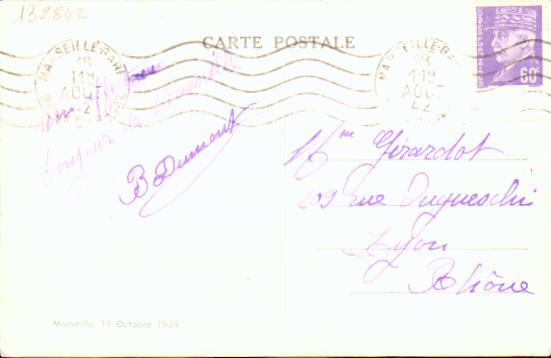 132842
CARTE POSTALE
MARSEILLE-GARE
18
11H
AOÛT
42
MARSEILLE-GARE
18
11H
AOÛT
42
60
un affectueux
bonjour de Marseille
B Dumont
Mme Girardot
209 Rue Dugueschi
Lyon
Rhône
Marseille, 11 Octobre 1939